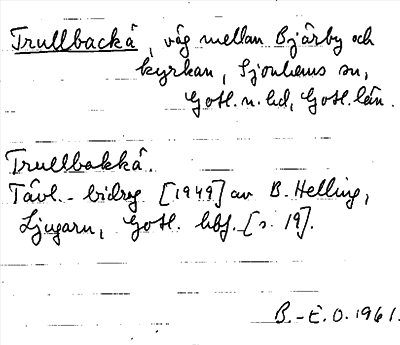 Trullbackå, väg mellan Bjärby och
kyrkan, Sjonhems sn,
Gotl. n. hd, Gotl. län.
Trullbakkå.
Tävl.-bidrag [1949] av B. Helling,
Ljugarn, Gotl. hbf. [s. 19].
B.-E.O. 1961.